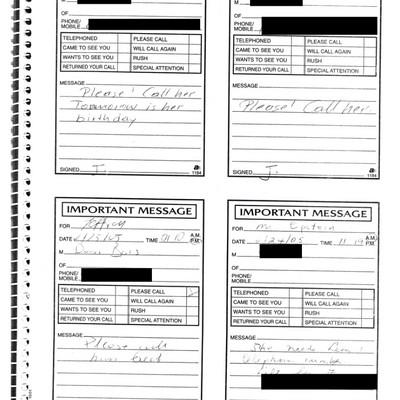 M
OF
PHONE/
MOBILE
TELEPHONED PLEASE CALL
CAME TO SEE YOU WILL CALL AGAIN
WANTS TO SEE YOU RUSH
RETURNED YOUR CALL SPECIAL ATTENTION
MESSAGE
Please! Call her
Tomorrow is her
birthday
SIGNED J.
1184
OF
PHONE/
MOBILE
TELEPHONED PLEASE CALL
CAME TO SEE YOU WILL CALL AGAIN
WANTS TO SEE YOU RUSH
RETURNED YOUR CALL SPECIAL ATTENTION
MESSAGE
Please! Call her
SIGNED J.
1184
IMPORTANT MESSAGE
FOR
DATE TIME A.M. P.M.
M
OF
PHONE/
MOBILE
TELEPHONED PLEASE CALL
CAME TO SEE YOU WILL CALL AGAIN
WANTS TO SEE YOU RUSH
RETURNED YOUR CALL SPECIAL ATTENTION
MESSAGE
Please call
IMPORTANT MESSAGE
FOR Mr. Epstein
DATE TIME 11 19 A.M. P.M.
M
OF
PHONE/
MOBILE
TELEPHONED PLEASE CALL
CAME TO SEE YOU WILL CALL AGAIN
WANTS TO SEE YOU RUSH
RETURNED YOUR CALL SPECIAL ATTENTION
MESSAGE
She needs
telephone number